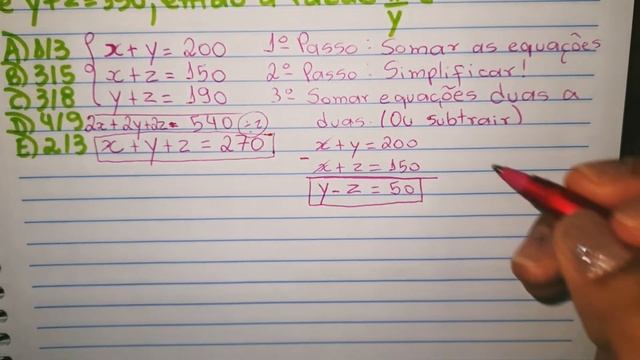 e y+z=190, então a razão x/y
A) 1/3 { x+y=200 1º Passo: Somar as equações
B) 3/5 x+z=150 2º Passo: Simplificar!
C) 3/8 y+z=190 3º Somar equações duas a
D) 4/9 2x+2y+2z=540 (÷2) duas. (Ou subtrair)
E) 2/3 x+y+z=270 x+y=200
- x+z=150
y-z=50